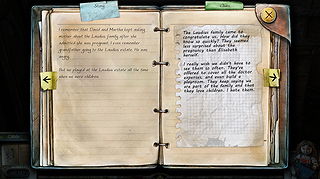 Story
Clues
I remember that David and Martha kept asking
mother about the Laudius family after she
admitted she was pregnant. I even remember
grandfather going to the Laudius estate. He was
angry.
But we played at the Laudius estate all the time
when we were children.
The Laudius family came to
congratulate us. How did they
know so quickly? They seemed
less surprised about the
pregnancy than Elisabeth
herself.
I really wish we didn't have to
see them so often. They've
offered to cover all the doctor
expenses, and even build a
playroom. They keep saying we
are part of the family and that
they love children. I hate them.